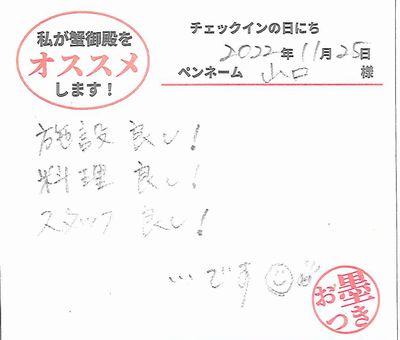 私が蟹御殿を
オススメ
します！
チェックインの日にち
2022年11月25日
ペンネーム 山口 様
施設 良し！
料理 良し！
スタッフ 良し！
...です
お墨つき